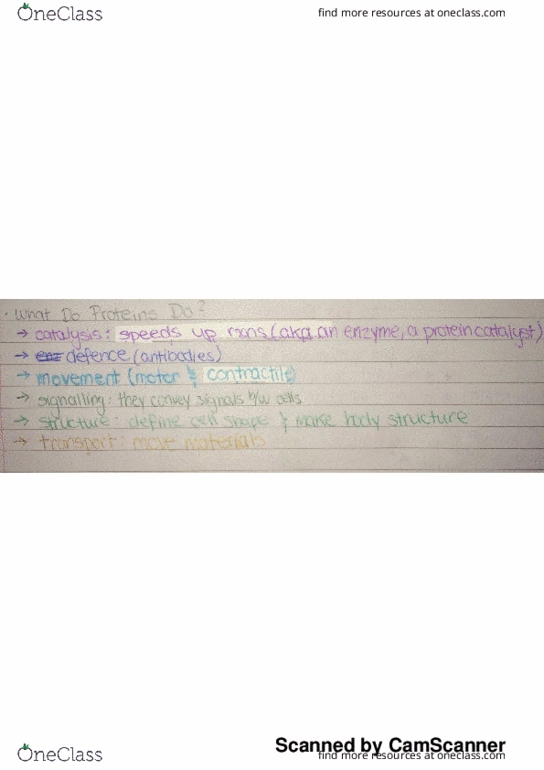 OneClass find more resources at oneclass.com
· What Do Proteins Do?
→ catalysis: speeds up rxns (aka an enzyme, a protein catalyst)
→ enz defence (antibodies)
→ movement (motor & contractile)
→ signalling: they convey signals b/w cells
→ structure: define cell shape & make body structure
→ transport: move materials
Scanned by CamScanner
OneClass find more resources at oneclass.com